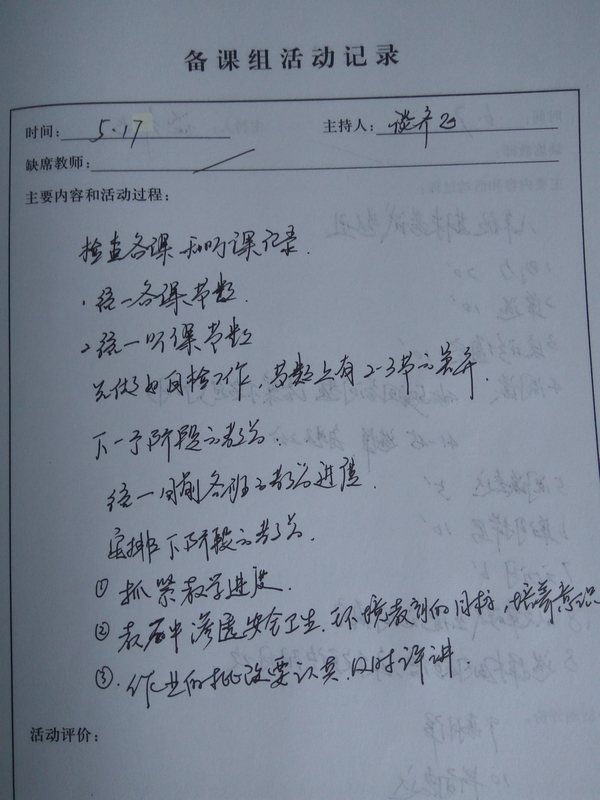 备课组活动记录
时间： 5.17 主持人：
缺席教师：
主要内容和活动过程：
检查备课和听课记录.
1.统一备课节数.
2.统一听课节数
先做好自检工作，节数上有2-3节的差异.
下一个阶段的教学.
统一目前各班的教学进度.
安排下阶段的教学.
① 抓紧教学进度.
② 教学中渗透安全卫生.环境教育的目标，培养意识
③.作业的批改要认真.及时评讲.
活动评价：